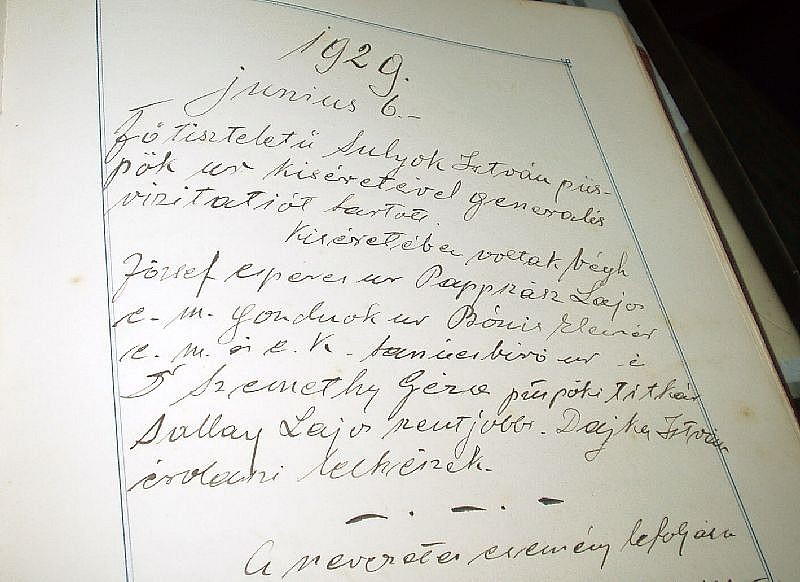 1929.
junius 6.-
Főtiszteletű Sulyok István püs-
pök ur kiséretével generalis
vizitatiót tartott.
Kiséretébe voltak Végh
József esperes ur Pappszász Lajos
e. m. gondnok ur Bónis Elemér
e. m. és e. k. tanácsbiró ur é
S Szemethy Géza püspöki titkár
Sallay Lajos szentjobbi. Dajka István
érolaszi lelkészek.
A nevezetes esemény lefolyása